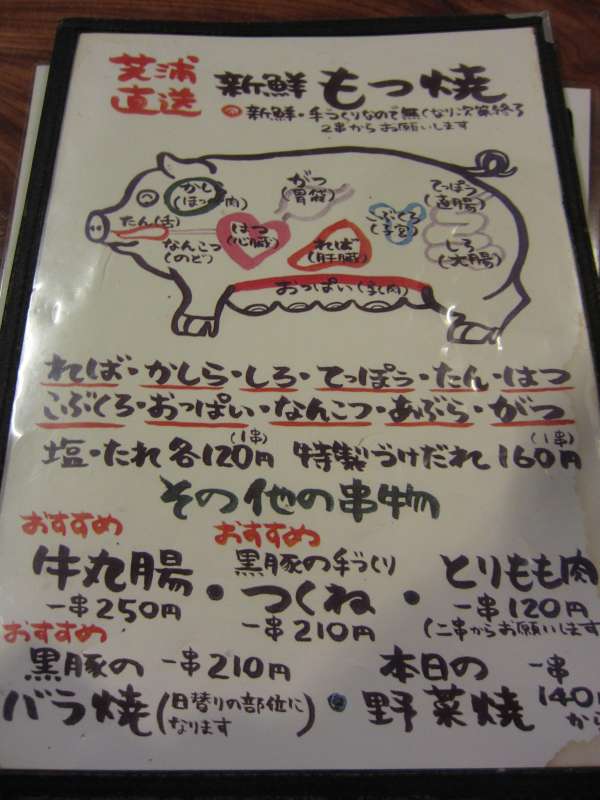 芝浦
直送
新鮮 もつ焼
新鮮・手づくりなので無くなり次第終了
2串からお願いします
かしら
(ほっぺ肉)
がつ
(胃袋)
てっぽう
(直腸)
たん(舌)
はつ
(心臓)
こぶくろ
(子宮)
なんこつ
(のど)
れば
(肝臓)
しろ
(大腸)
おっぱい(乳肉)
れば・かしら・しろ・てっぽう・たん・はつ
こぶくろ・おっぱい・なんこつ・あぶら・がつ
塩・たれ各120円(1串) 特製づけだれ160円(1串)
その他の串物
おすすめ
牛丸腸
一串250円
おすすめ
黒豚の手づくり
つくね
一串210円
とりもも肉
一串120円
(二串からお願いします
おすすめ
黒豚の 一串210円
バラ焼(日替りの部位になります)
本日の 一串
野菜焼 140円
から